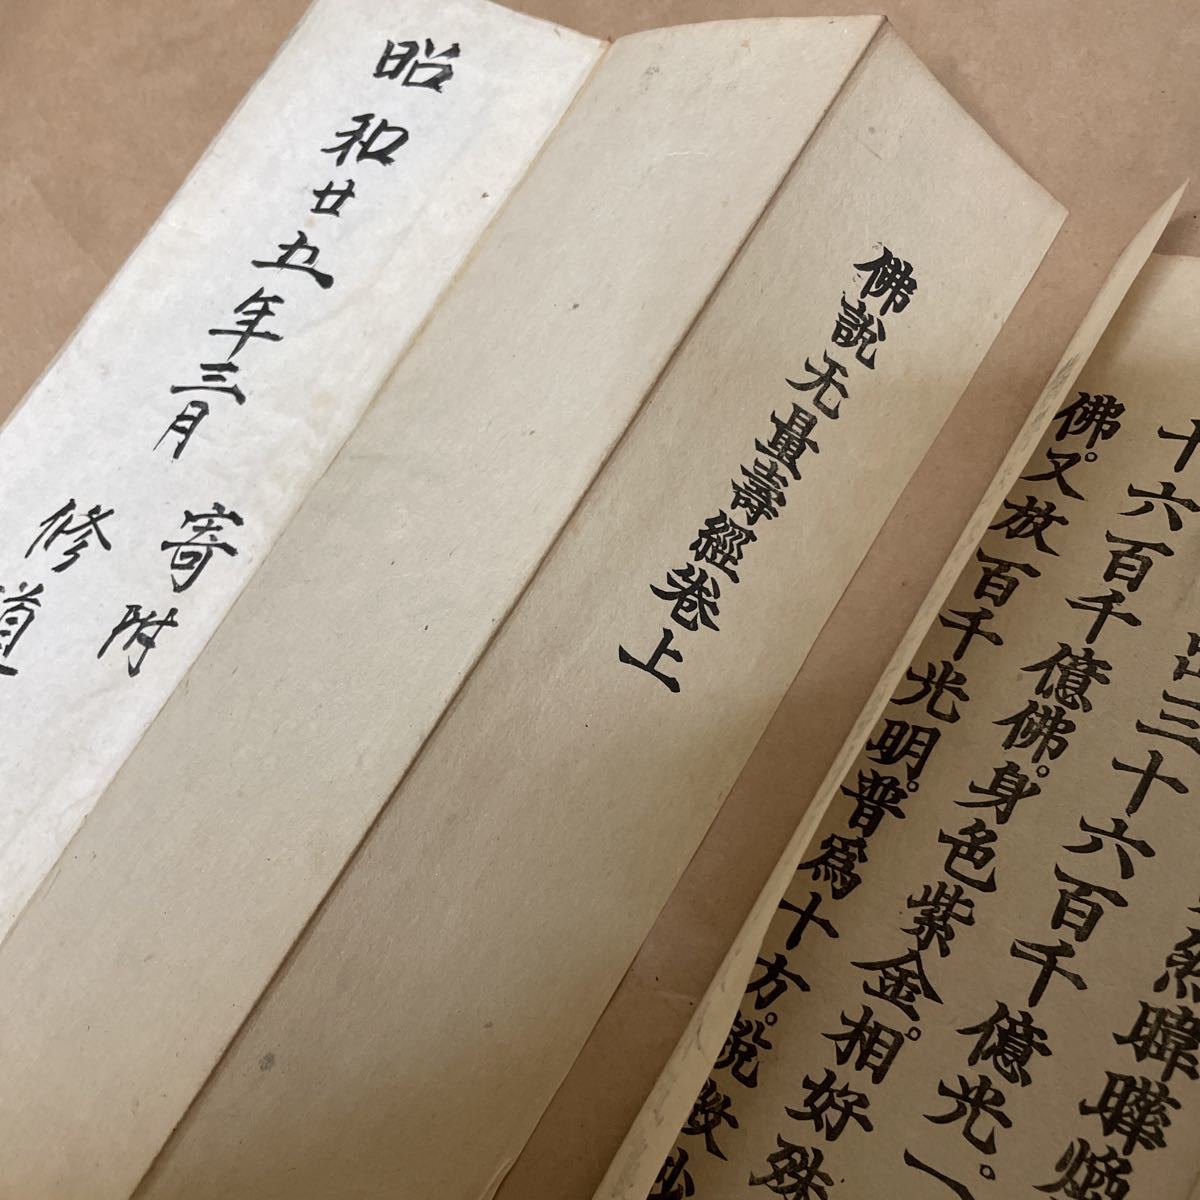 然暐曄煥
出三十六百千億光。一
十六百千億佛。身色紫金。相好殊
佛。又放百千光明。普爲十方。說微妙
佛說无量壽經卷上
昭和廿五年三月
寄附
修道